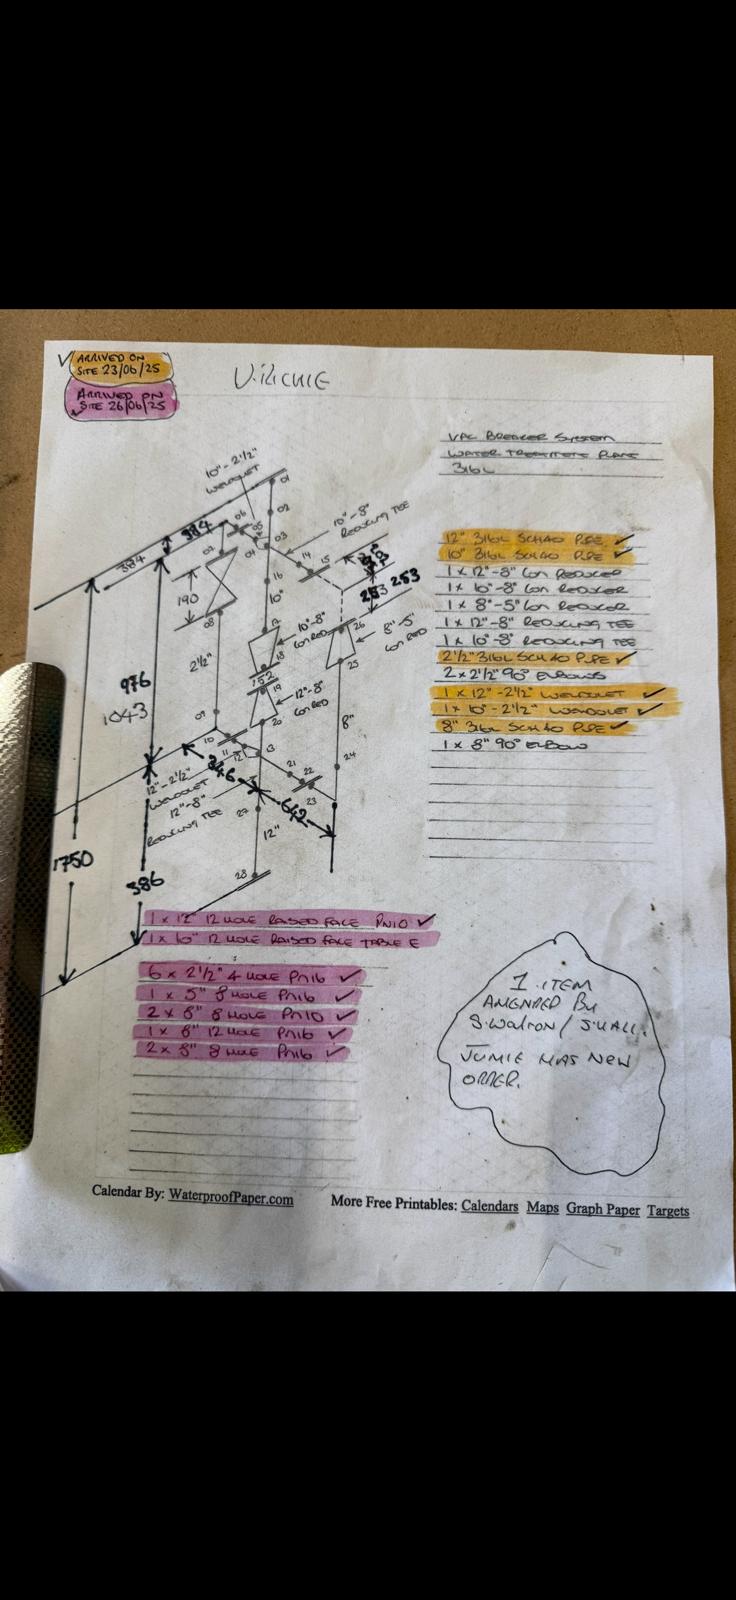 ARRIVED ON
SITE 23/06/25
ARRIVED ON
SITE 26/06/25
V. RICHIE
VAC BREAKER SYSTEM
WATER TREATMENT PLANT
316L
12" 316L SCH40 PIPE ✓
10" 316L SCH40 PIPE ✓
1 x 12"-8" CON REDUCER
1 x 10"-8" CON REDUCER
1 x 8"-5" CON REDUCER
1 x 12"-8" REDUCING TEE
1 x 10"-8" REDUCING TEE
2 1/2" 316L SCH40 PIPE ✓
2 x 2 1/2" 90° ELBOWS
1 x 12"-2 1/2" WELDOLET ✓
1 x 10"-2 1/2" WELDOLET ✓
8" 316L SCH40 PIPE ✓
1 x 8" 90° ELBOW
10"-2 1/2"
WELDOLET
01
02
03
04
05
06
08
09
10
11
12
13
14
15
16
17
18
19
20
21
22
23
24
25
26
27
28
10"-8"
REDUCING TEE
384
384
190
253
253
10"
10"-8"
CON RED
8"-5"
CON RED
2 1/2"
152
12"-8"
CON RED
976
1043
8"
12"-2 1/2"
WELDOLET
346
12"-8"
REDUCING TEE
642
12"
1750
386
1 x 12" 12 HOLE RAISED FACE PN10 ✓
1 x 10" 12 HOLE RAISED FACE TABLE E
6 x 2 1/2" 4 HOLE PN16 ✓
1 x 5" 8 HOLE PN16 ✓
2 x 8" 8 HOLE PN10 ✓
1 x 8" 12 HOLE PN16 ✓
2 x 8" 8 HOLE PN16 ✓
1 ITEM
AMENDED BY
S.WALTON / S.HALL.
JUMIE HAS NEW
ORDER.
Calendar By: WaterproofPaper.com
More Free Printables: Calendars Maps Graph Paper Targets